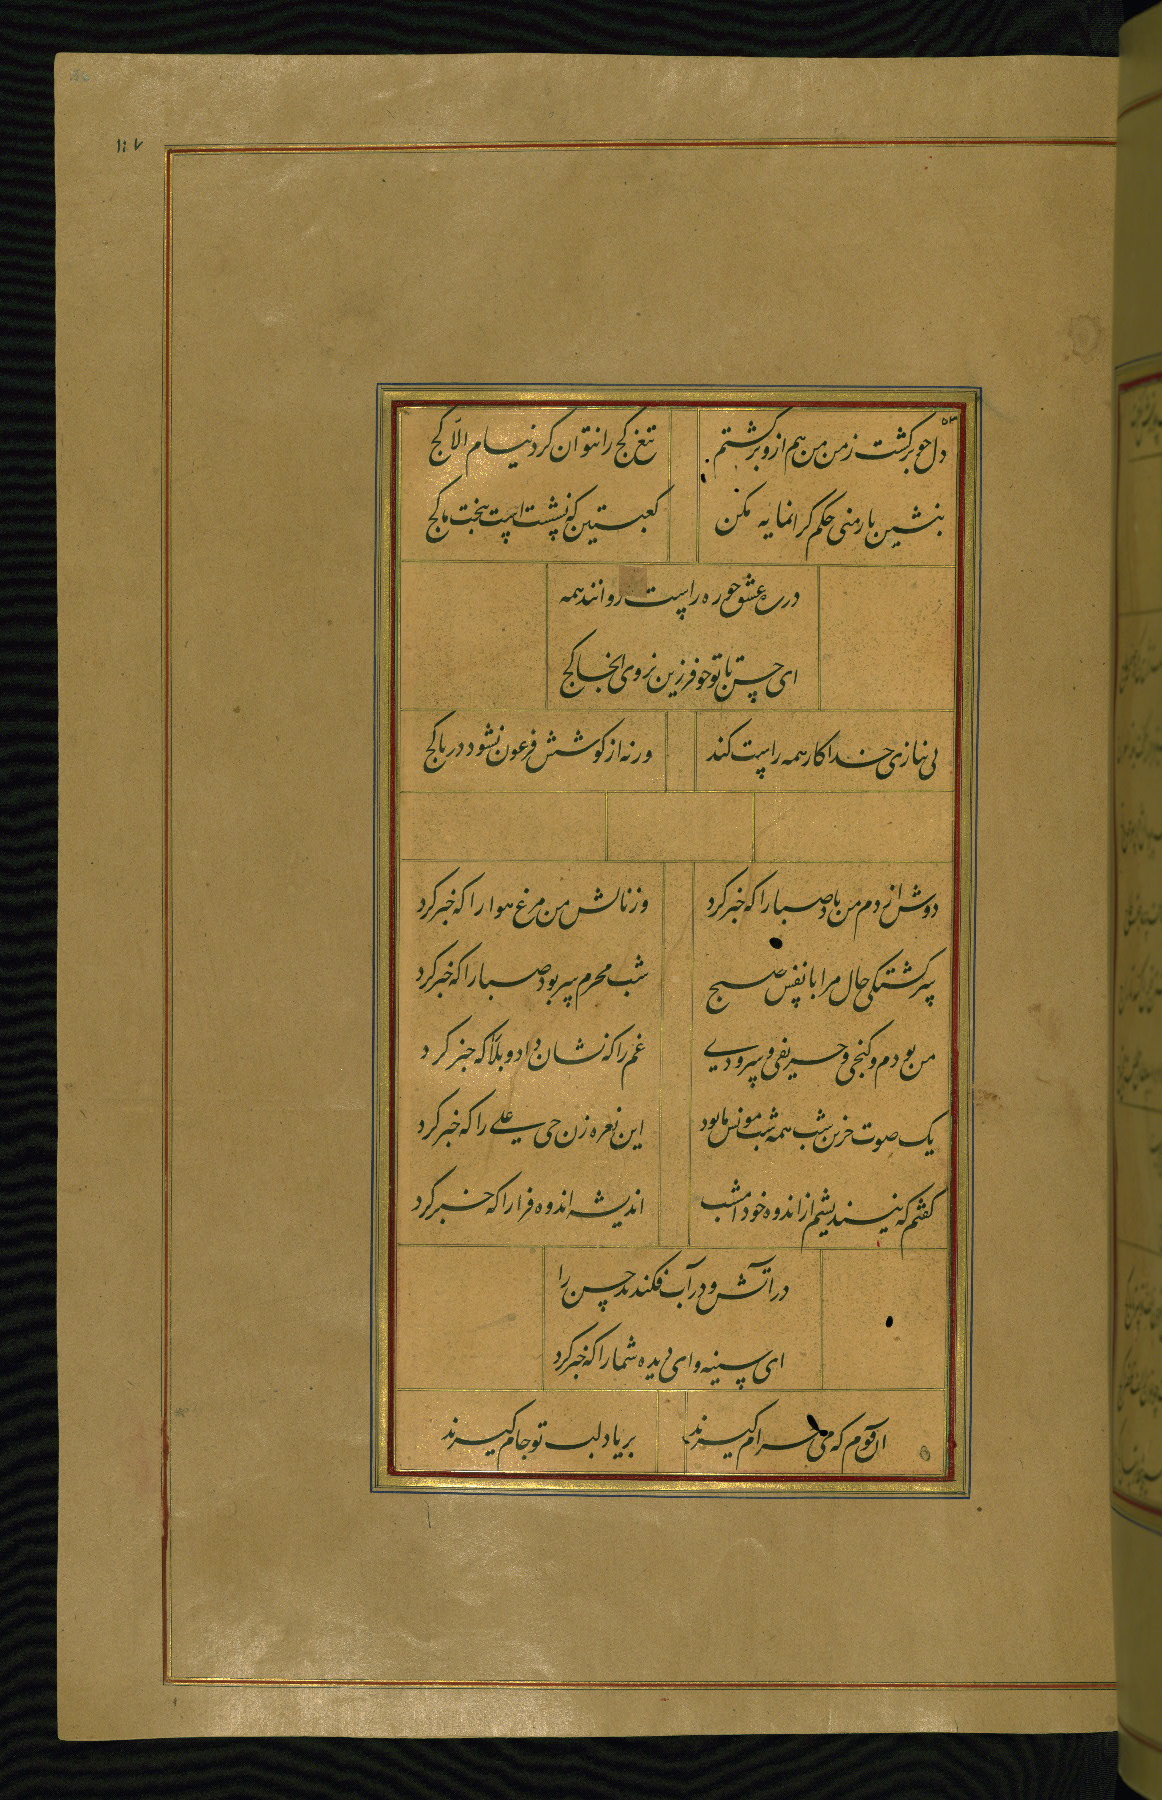 دل چو برگشت ز من من هم ازو برگشتم
تیغ کج را نتوان کرد نیام الّا کج
بنشین بار منی حکم گرانمایه مکن
کعبتین که نشست است ببخت ما کج
در ره عشق چو ره راست روانند همه
ای حسن با تو چو فرزین نروی کج
بی نیازی خدا کار همه راست کند
ورنه از کوشش فرعون نشود دریا کج
دوش از دم من باد صبا را که خبر کرد
وز نالش من مرغ هوا را که خبر کرد
سرگشتگی حال مرا با نفس صبح
شب محرم سر بود صبا را که خبر کرد
من بودم و کنجی و حریفی و سرودی
غم را که نشان داد و بلا که خبر کرد
یک صوت حزین شب همه شب مونس ما بود
این نعره زن حی علی را که خبر کرد
گفتم که نیندیشم از اندوه خود امشب
اندیشه اندوه فرا را که خبر کرد
در آتش و در آب فکندند حسن را
ای سینه و ای دیده شما را که خبر کرد
آن قوم که می حرام گیرند
بر یاد لبت تو جام گیرند